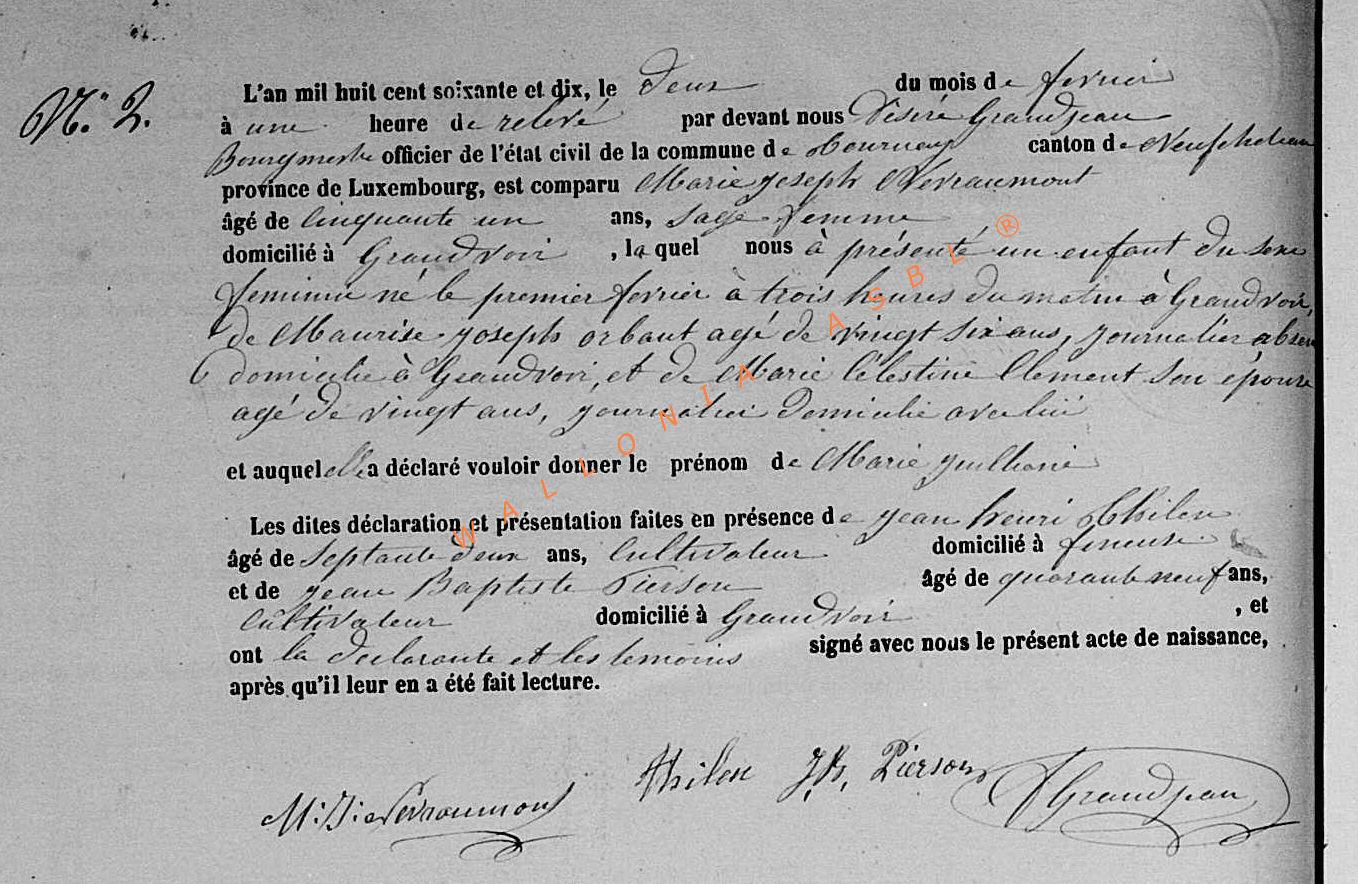 N° 2.
L'an mil huit cent soixante et dix, le deux du mois de fevrier
à une heure de relevé par devant nous Désiré Grandjean
Bourgmestre officier de l'état civil de la commune de Tournay canton de Neufchateau
province de Luxembourg, est comparu Marie Joseph Nevraumont
âgé de cinquante un ans, sage femme
domicilié à Grandvoir , la quel nous à présenté un enfant du sexe
feminin né le premier fevrier à trois heures du matin à Grandvoir,
de Maurise Joseph orbant agé de vingt six ans, journalier absen
domicilie à Grandvoir, et de Marie Célestine Clement son épouse
agé de vingt ans, domicilie avec lui
et auquel elle a déclaré vouloir donner le prénom de Marie
Les dites déclaration et présentation faites en présence de jean henri Thilen
âgé de septante deux ans, Cultivateur domicilié à fineuse
et de jean Baptiste Pierson âgé de quarante neuf ans,
Cultivateur domicilié à Grandvoir , et
ont la declarante et les temoins signé avec nous le présent acte de naissance,
après qu'il leur en a été fait lecture.
M: J: Nevraumont Thilen J, B, Pierson DGrandjean
WALLONIA ASBL ®